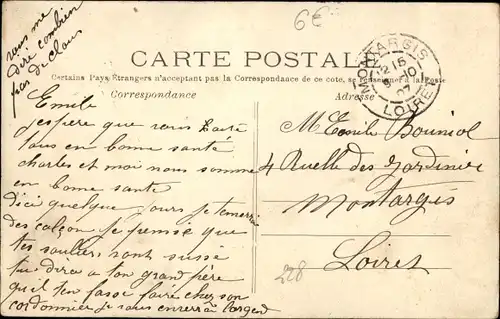 vous me
dire combien
pas de clous
6€
CARTE POSTALE
Certains Pays Étrangers n'acceptant pas la Correspondance de ce côté, se renseigner à la Poste
Correspondance
Adresse
MONTARGIS
15
10
07
LOIRET
Emile
j'espère que vous
tous en bonne santé
charles et moi nous somme
en bonne santé
d'ici quelque jours je t'enverrai
des calçon je pense que
tes souliers sont
tu dira a ton grand père
qu'il t'en fasse faire chez son
cordonnier je vous enverrai l'argent
M Emile Bouniol
4 Ruelle des Jardinier
Montargis
Loiret
228